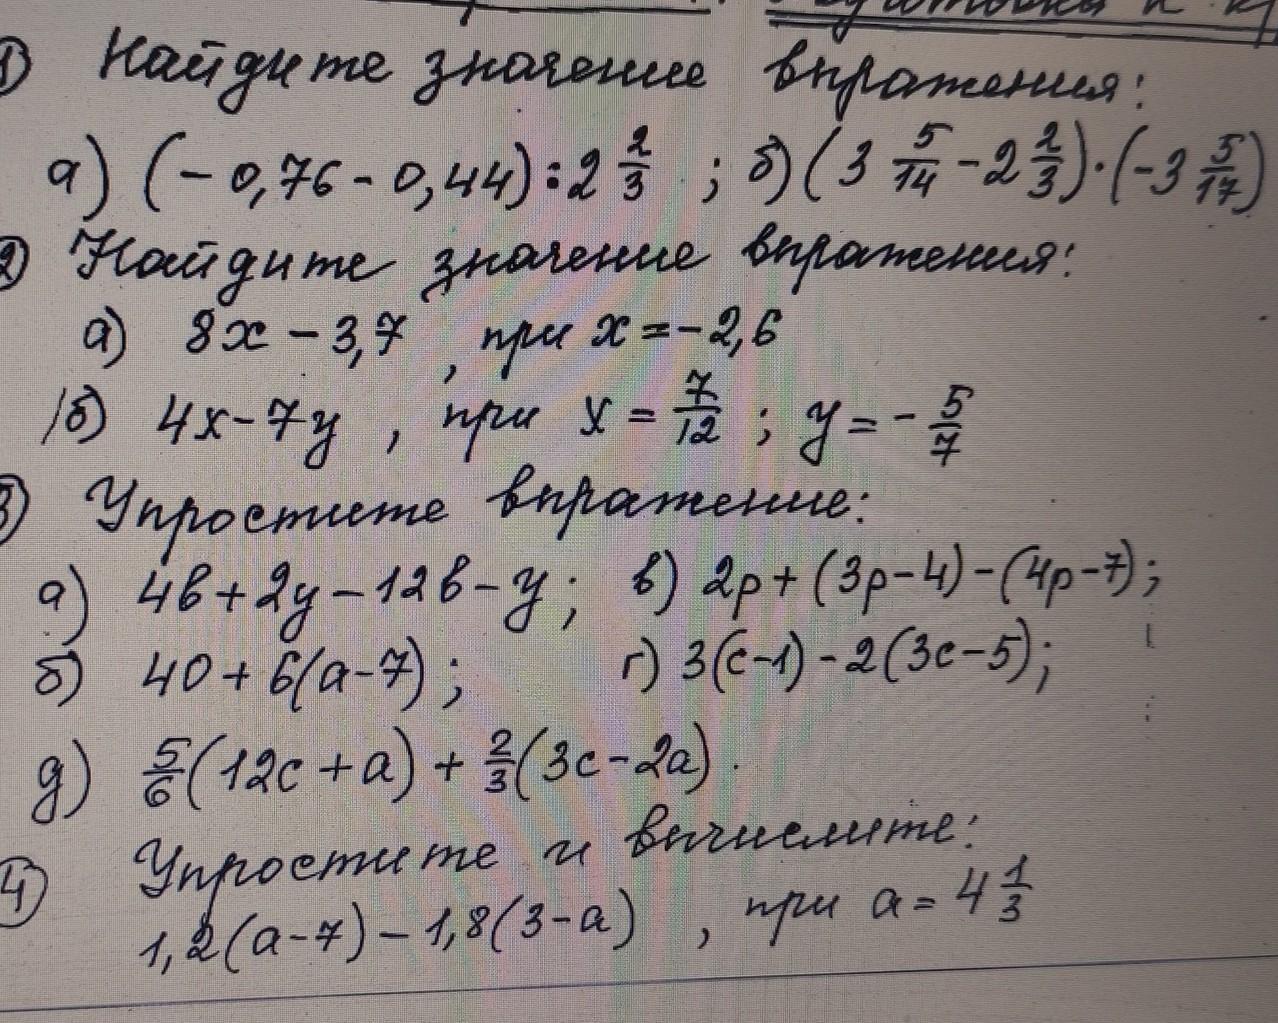 1) Найдите значение выражения:
а) (- 0,76 - 0,44) : 2 2/3 ; б) (3 5/14 - 2 2/3) · (-3 5/17)
2) Найдите значение выражения:
а) 8x - 3,7 , при x = -2,6
б) 4x - 7y , при x = 7/12 ; y = - 5/7
3) Упростите выражение:
а) 4b + 2y - 12b - y ; в) 2p + (3p - 4) - (4p - 7) ;
б) 40 + 6(a - 7) ; г) 3(c - 1) - 2(3c - 5) ;
д) 5/6 (12c + a) + 2/3 (3c - 2a) .
4) Упростите и вычислите:
1,2(a - 7) - 1,8(3 - a) , при a = 4 1/3